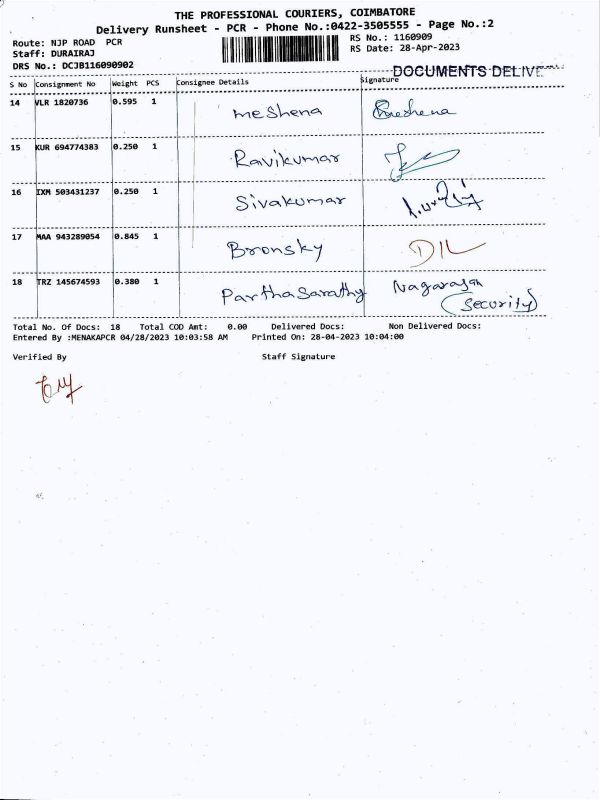 THE PROFESSIONAL COURIERS, COIMBATORE
Delivery Runsheet - PCR - Phone No.:0422-3505555 - Page No.:2
Route: NJP ROAD PCR
RS No.: 1160909
Staff: DURAIRAJ
RS Date: 28-Apr-2023
DRS No.: DCJB116090902
DOCUMENTS DELIVE
S No Consignment No Weight PCS Consignee Details Signature
14 VLR 1820736 0.595 1 meshena Meshena
15 KUR 694774383 0.250 1 Ravikumar
16 IXM 503431237 0.250 1 Sivakumar
17 MAA 943289054 0.845 1 Bronsky DIL
18 TRZ 145674593 0.380 1 Partha Sarathy Nagarajan
(Security)
Total No. Of Docs: 18 Total COD Amt: 0.00 Delivered Docs: Non Delivered Docs:
Entered By :MENAKAPCR 04/28/2023 10:03:58 AM Printed On: 28-04-2023 10:04:00
Verified By Staff Signature